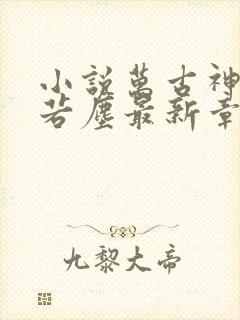 小說萬古神
若塵最新章
九黎大帝